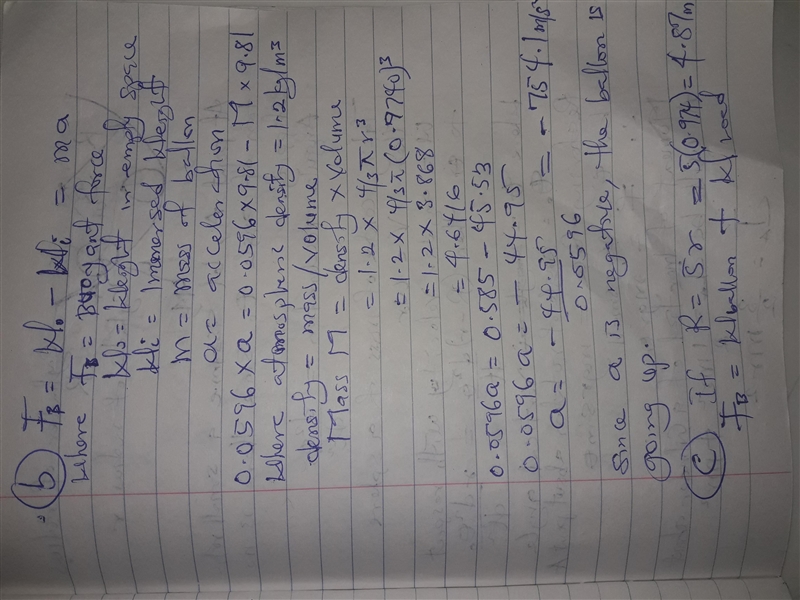 b) F_B = W_0 - W_i = ma
Where F_B = Buoyant force
W_0 = Weight in empty space
W_i = Immersed Weight
M = Mass of ballon
a = acceleration
0.0596 × a = 0.0596 × 9.81 - M × 9.81
Where atmosphere density = 1.2 kg/m³
density = mass/volume
Mass M = density × Volume
= 1.2 × 4/3 π r³
= 1.2 × 4/3 π (0.9740)³
= 1.2 × 3.868
= 4.6416
0.0596a = 0.585 - 45.53
0.0596a = - 44.95
a = - 44.95 / 0.0596 = - 754.1 m/s²
Since a is negative, the ballon is
going up.
c) If R = 5r = 5(0.974) = 4.87m
F_B = W ballon + W road